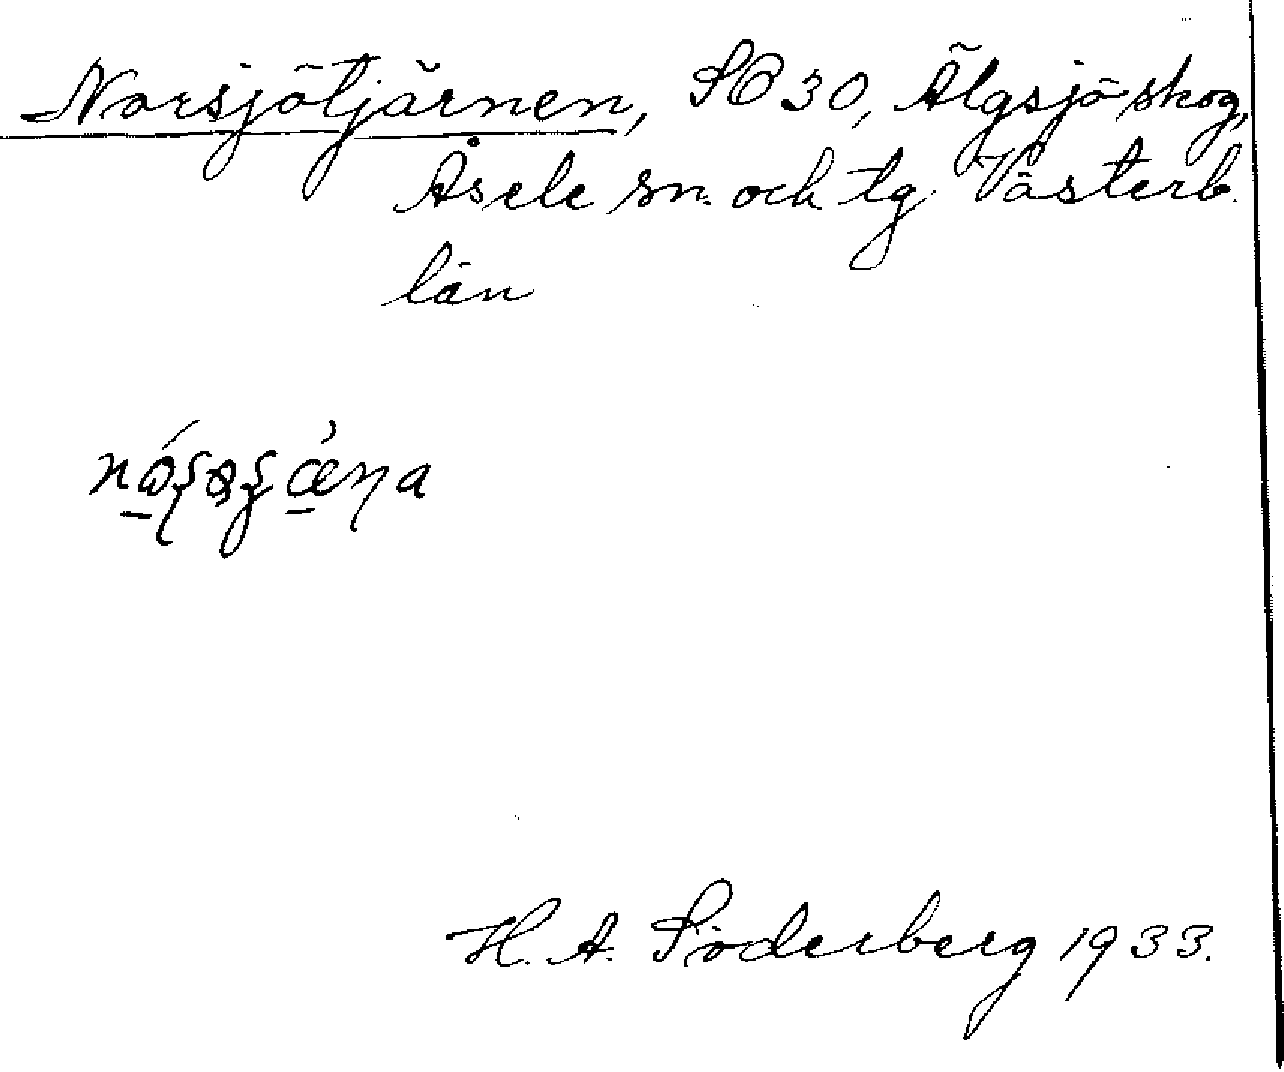 Norsjötjärnen, SO 30, Älgsjö skog,
Åsele sn. och tg. Västerb.
län
H. A. Söderberg 1933.